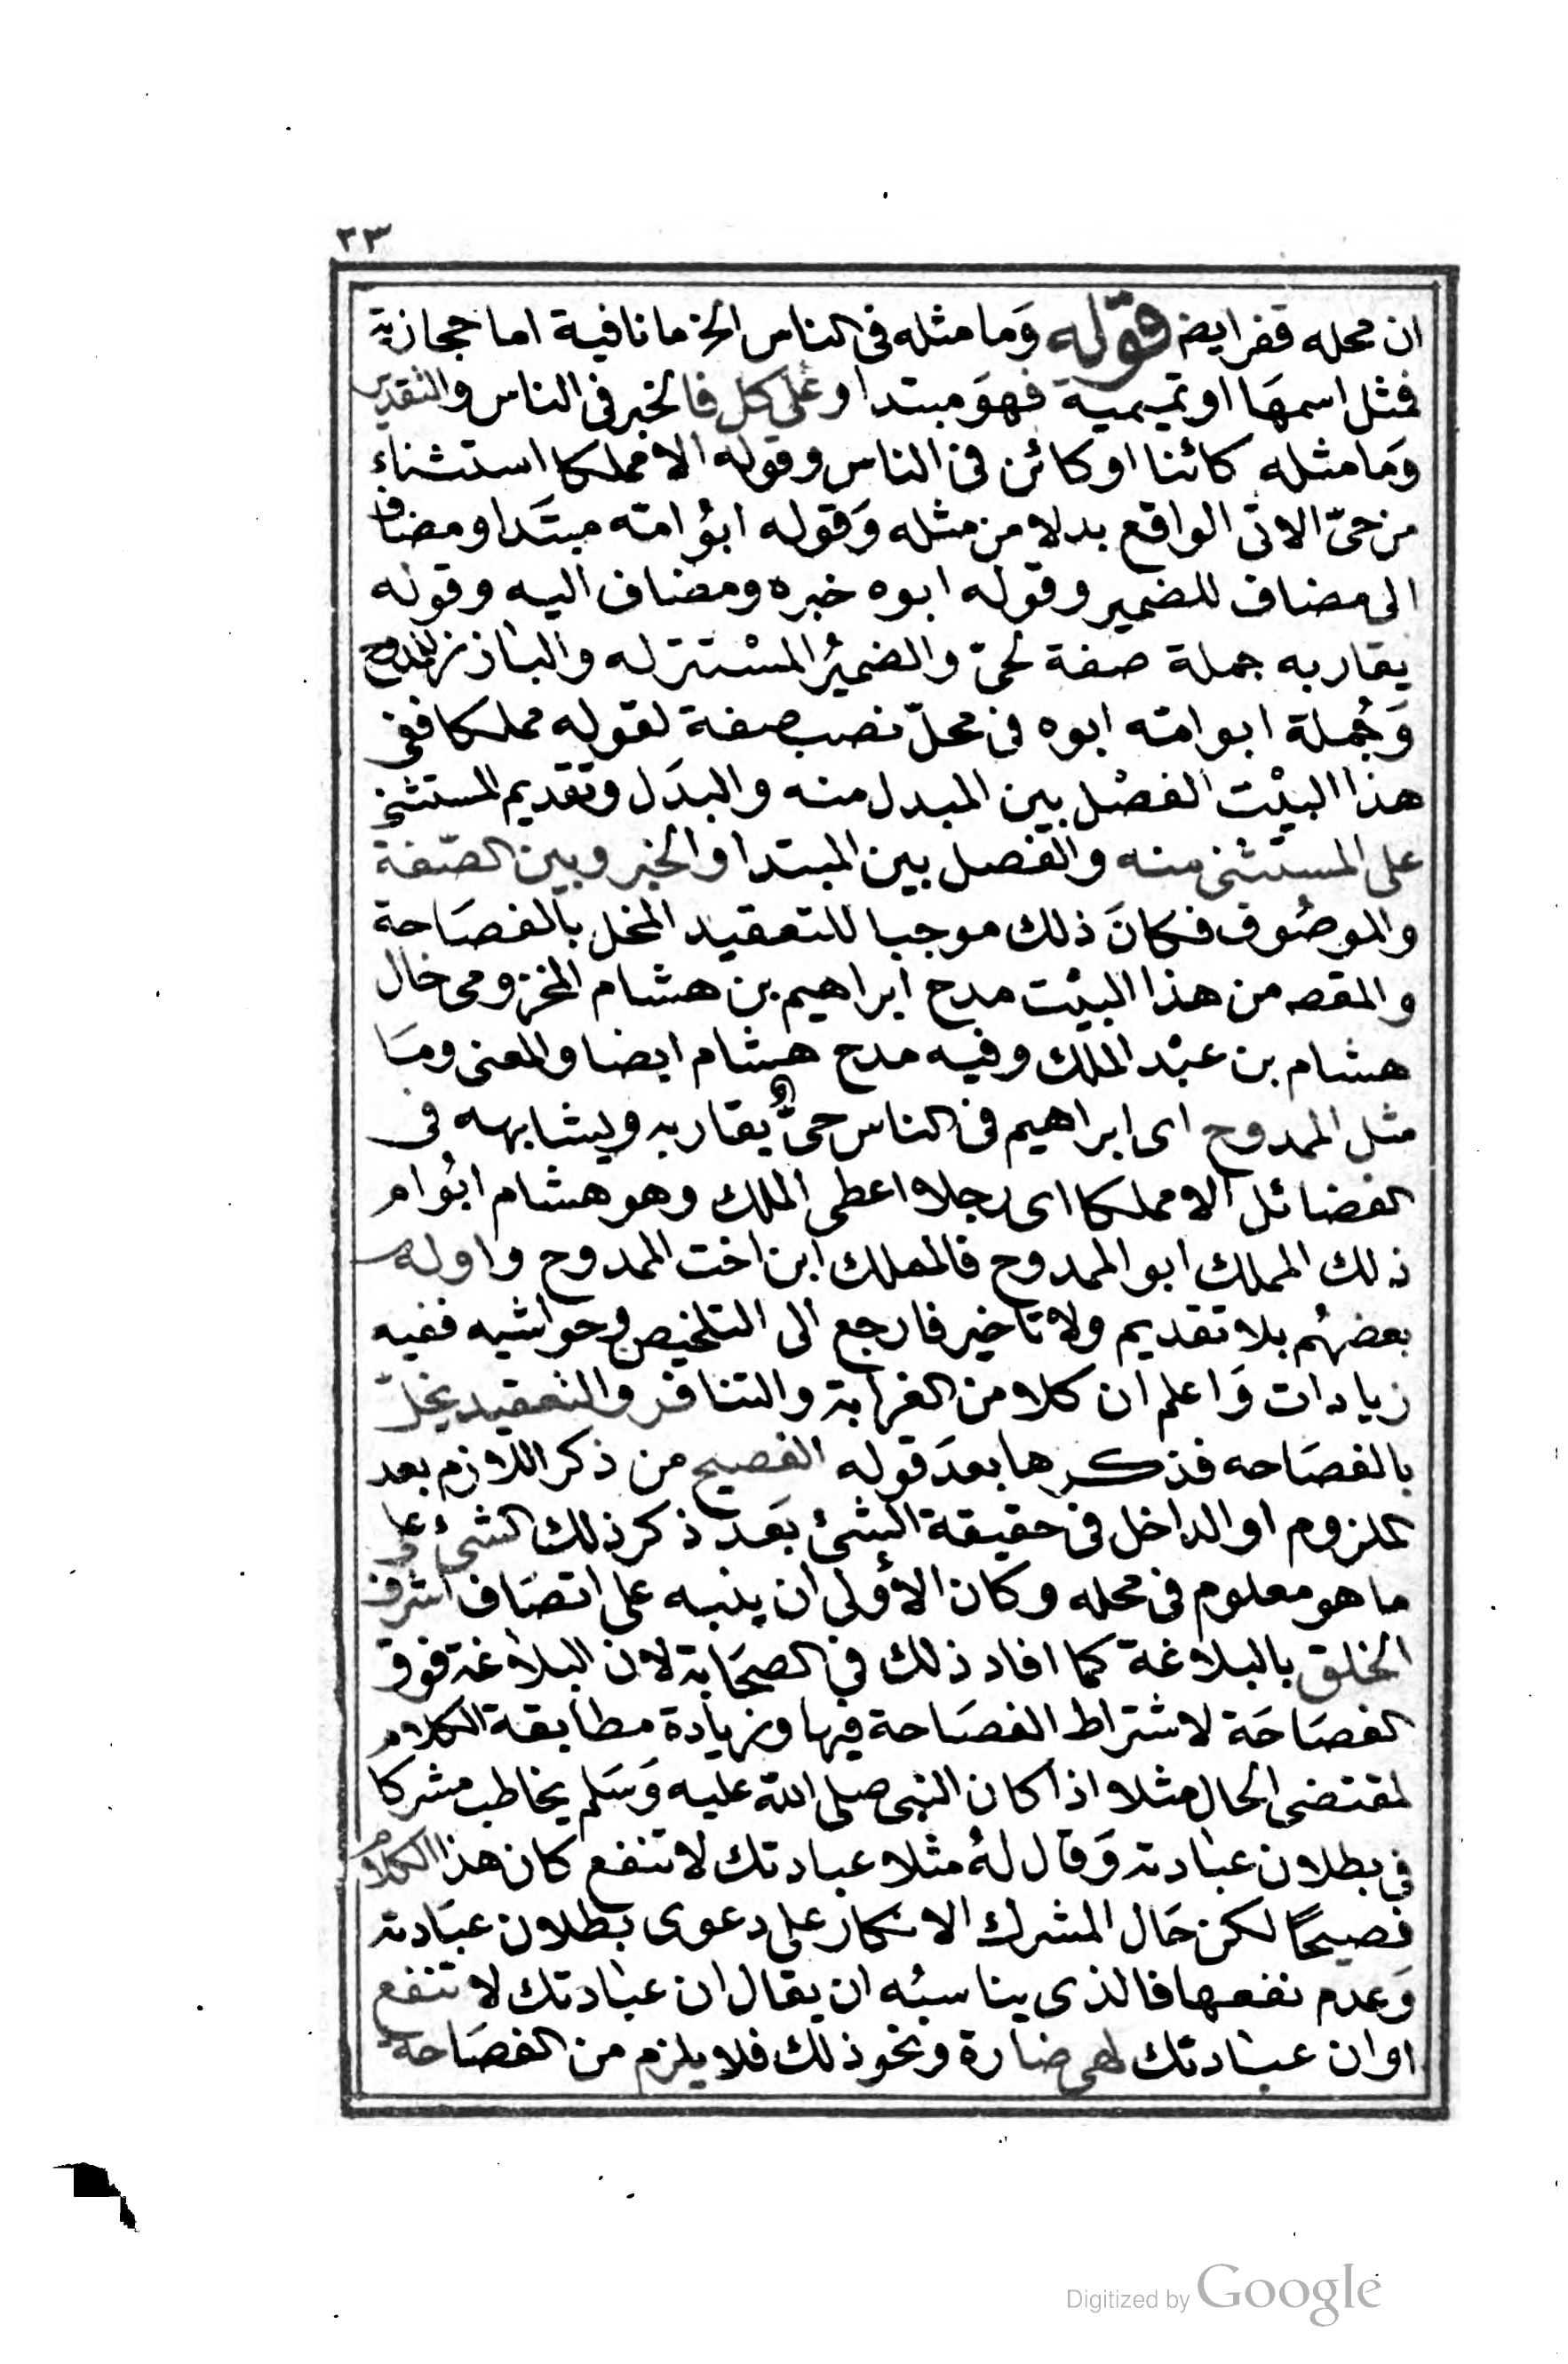 ٢٣
ان محله قفر ايض قوله وَما مثله فى الناس الخ ما نافية اما حجازية
فمثل اسمهَا او تميمية فهوَ مبتدا وعلى كل فالخبر فى الناس والتقدير
وَما مثله كائنا او كائن فى الناس وقوله الا مملكا استثناء
من حىّ الاتى الواقع بدلا من مثله وَقوله ابُو امّه مبتَدا ومضاف
الى مضاف للضمير وقوله ابوه خبره ومضاف اليه وقوله
يقاربه جملة صفة لحىّ والضميُر المسْتتر له والبارز للممدوح
وَجُملة ابو امّه ابوه فى محلّ نصب صفة لقوله مملكا ففى
هذا البيْت الفصْل بين المبدل منه والبدَل وتقديم المستثنى
على المستثنى منه والفصل بين المبتدا والخبر وبين الصّفة
والموصُوف فكانَ ذلك موجبا للتعقيد المخل بالفصَاحة
والمقصه من هذا البيْت مدح ابراهيم بن هشام المخزومى خال
هشام بن عبْد الملك وفيه مدح هشام ايضا والمعنى ومَا
مثل الممدوح اى ابراهيم فى الناس حىٌّ يقاربه ويشابهه فى
الفضائل الا مملكا اى رجلا اعطى الملك وهو هشام ابُو ام
ذلك المملك ابو الممدوح فالمملك ابن اخت الممدوح واوله
بعضهُم بلا تقديم ولا تاخير فارجع الى التلخيص وحواشيه ففيه
زيادات وَاعلم ان كلا من الغرابة والتنافر والتعقيد يخلّ
بالفصَاحه فذكرها بعدَ قوله الفصيح من ذكر اللازم بعد
الملزوم او الداخل فى حقيقة الشئ بعَد ذكر ذلك الشئ على
ما هو معلوم فى محله وكان الأولى ان ينبه على اتصَاف اشرف
الخلق بالبلاغة كما افاد ذلك فى الصحَابة لان البلاغة فوق
الفصَاحَة لاشتراط الفصَاحة فيها وزيادة مطابقة الكلام
لمقتضى الحال مثلا اذا كان النبى صلى الله عليه وَسَلم يخاطب مشركا
فى بطلان عبادته وَقال لهُ مثلا عبادتك لا تنفع كان هذا الكلام
فصيحًا لكن حَال المشرك الانكار على دعوى بطلان عبَادته
وَعدم نفعها فالذى يناسبُه ان يقال ان عبَادتك لا تنفع
او ان عبَادتك لهى ضارة ونحو ذلك فلا يلزم من الفصَاحة
Digitized by Google